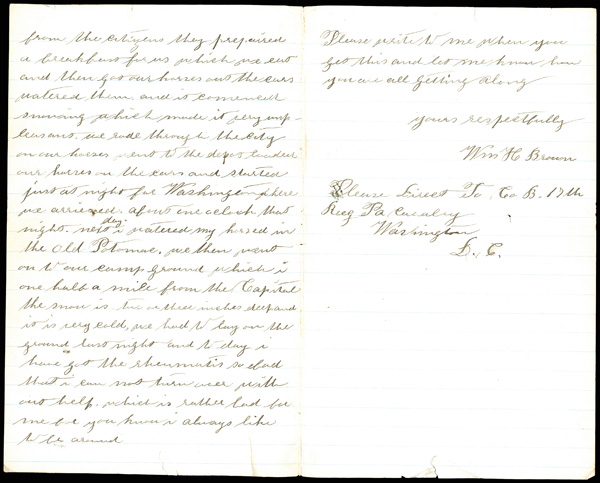 from the citizens they prepaired
a breakfast for us which we eat
and then got our horses out the cars
watered them and it comenced
snowing which made it very unp-
leasant, we rode through the city
on our horses went to the depot loaded
our horses on the cars and started
just at night for Washington where
we arrieved about one oclock that
night. next day i watered my horse in
the Old Potomac, we then went
on to our camp ground which i
one half a mile from the Capital
the snow is two or three inches deep and
it is very cold, we had to lay on the
ground last night and to day i
have got the rheumatis so bad
that i can not turn over with
out help. which is rather bad for
me as you know i always like
to be around
Please write to me when you
get this and let me know how
you are all getting along
yours respectfully
Wm H Brown
Please Direct To, Co B. 17th
Reg Pa, Cavalry
Washington
D. C.